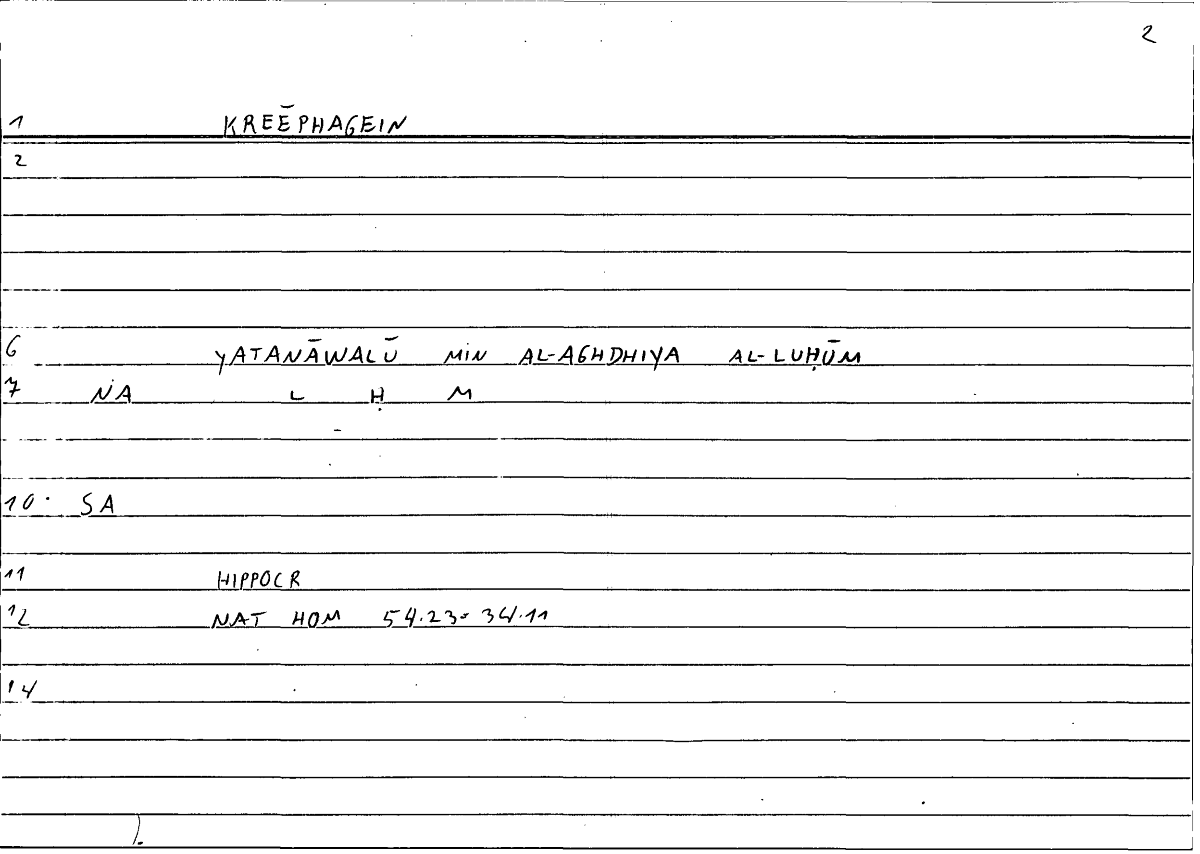 2
1 KREĒPHAGEIN
2
6 YATANĀWALŪ MIN AL-AGHDHIYA AL-LUḤŪM
7 NA L Ḥ M
10 SA
11 HIPPOCR
12 NAT HOM 54.23=34.11
14